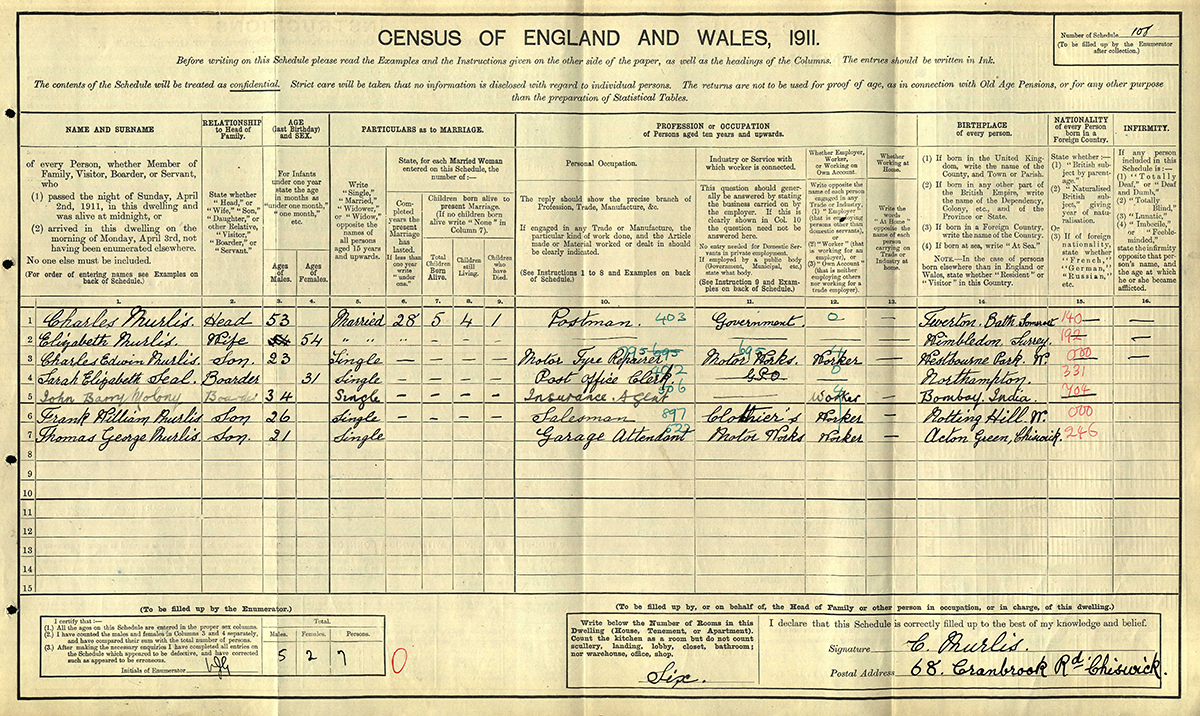 CENSUS OF ENGLAND AND WALES, 1911.
Number of Schedule 108
(To be filled up by the Enumerator after collection.)
Before writing on this Schedule please read the Examples and the Instructions given on the other side of the paper, as well as the headings of the Columns. The entries should be written in Ink.
The contents of the Schedule will be treated as confidential. Strict care will be taken that no information is disclosed with regard to individual persons. The returns are not to be used for proof of age, as in connection with Old Age Pensions, or for any other purpose
than the preparation of Statistical Tables.
NAME AND SURNAME
of every Person, whether Member of
Family, Visitor, Boarder, or Servant,
who
(1) passed the night of Sunday, April
2nd, 1911, in this dwelling and
was alive at midnight, or
(2) arrived in this dwelling on the
morning of Monday, April 3rd, not
having been enumerated elsewhere.
No one else must be included.
(For order of entering names see Examples on
back of Schedule.)
RELATIONSHIP
to Head of
Family.
State whether
"Head," or
"Wife," "Son,"
"Daughter," or
other Relative,
"Visitor,"
"Boarder," or
"Servant."
AGE
(last Birthday)
and SEX.
For Infants
under one year
state the age
in months as
"under one month,"
"one month,"
etc.
Ages of Males.
Ages of Females.
PARTICULARS as to MARRIAGE.
Write
"Single,"
"Married,"
"Widower,"
or "Widow,"
opposite the
names of
all persons
aged 15 years
and upwards.
State, for each Married Woman
entered on this Schedule, the
number of :—
Completed years the present Marriage has lasted. If less than one year write "under one."
Children born alive to
present Marriage.
(If no children born
alive write "None" in
Column 7).
Total Children Born Alive.
Children still Living.
Children who have Died.
PROFESSION or OCCUPATION
of Persons aged ten years and upwards.
Personal Occupation.
The reply should show the precise branch of
Profession, Trade, Manufacture, &c.
If engaged in any Trade or Manufacture, the
particular kind of work done, and the Article
made or Material worked or dealt in should
be clearly indicated.
(See Instructions 1 to 8 and Examples on back
of Schedule.)
Industry or Service with
which worker is connected.
This question should generally be answered by stating
the business carried on by
the employer. If this is
clearly shown in Col. 10
the question need not be
answered here.
No entry needed for Domestic Servants in private employment.
If employed by a public body
(Government, Municipal, etc.)
state what body.
(See Instruction 9 and Examples on back of Schedule.)
Whether Employer,
Worker,
or Working on
Own Account.
Write opposite the
name of each person
engaged in any
Trade or Industry,
(1) "Employer"
(that is employing
persons other than
domestic servants),
or
(2) "Worker" (that
is working for an
employer), or
(3) "Own Account"
(that is neither
employing others
nor working for a
trade employer).
Whether Working at Home.
Write the
words
"At Home"
opposite the
name of each
person
carrying on
Trade or
Industry at
home.
BIRTHPLACE
of every person.
(1) If born in the United Kingdom, write the name of the
County, and Town or Parish.
(2) If born in any other part of
the British Empire, write
the name of the Dependency,
Colony, etc., and of the
Province or State.
(3) If born in a Foreign Country,
write the name of the Country.
(4) If born at sea, write "At Sea."
NOTE.—In the case of persons
born elsewhere than in England or
Wales, state whether "Resident" or
"Visitor" in this Country.
NATIONALITY
of every Person
born in a
Foreign Country.
State whether :—
(1) "British subject by parentage."
(2) "Naturalised British subject," giving year of naturalisation.
Or
(3) If of foreign nationality, state whether "French," "German," "Russian," etc.
INFIRMITY.
If any person included in this Schedule is :—
(1) "Totally Deaf," or "Deaf and Dumb,"
(2) "Totally Blind,"
(3) "Lunatic,"
(4) "Imbecile," or "Feeble-minded,"
state the infirmity opposite that person's name, and the age at which he or she became afflicted.
1. 2. 3. 4. 5. 6. 7. 8. 9. 10. 11. 12. 13. 14. 15. 16.
1 Charles Murlis. Head 53 Married 28 5 4 1 Postman. 403 Government. 0 — Twerton. Bath Somerset 140 — —
2 Elizabeth Murlis. Wife 54 " " — — — — — — — Wimbledon, Surrey. 192 — —
3 Charles Edwin Murlis. Son. 23 Single — — — — Motor Tyre Repairer 695 Motor Works. 695 Worker — Westbourne Park. W. 000
4 Sarah Elizabeth Seal. Boarder 31 Single — — — — Post Office Clerk GPO 0 — Northampton. 331
5 John Barry Molony Boarder 34 Single — — — — Insurance Agent — Worker — Bombay. India. 704
6 Frank William Murlis Son 26 Single — — — — Salesman 897 Clothier's Worker — Notting Hill W. 000
7 Thomas George Murlis. Son. 21 Single — — — — Garage Attendant Motor Works Worker — Acton Green, Chiswick. 246
8
9
10
11
12
13
14
15
(To be filled up by the Enumerator.)
I certify that :—
(1.) All the ages on this Schedule are entered in the proper sex columns.
(2.) I have counted the males and females in Columns 3 and 4 separately,
and have compared their sum with the total number of persons.
(3.) After making the necessary enquiries I have completed all entries on
the Schedule which appeared to be defective, and have corrected
such as appeared to be erroneous.
Initials of Enumerator
Total.
Males. Females. Persons.
5 2 7
0
(To be filled up by, or on behalf of, the Head of Family or other person in occupation, or in charge, of this dwelling.)
Write below the Number of Rooms in this
Dwelling (House, Tenement, or Apartment).
Count the kitchen as a room but do not count
scullery, landing, lobby, closet, bathroom;
nor warehouse, office, shop.
Six.
I declare that this Schedule is correctly filled up to the best of my knowledge and belief.
Signature C. Murlis.
Postal Address 68. Cranbrook Rd. Chiswick.